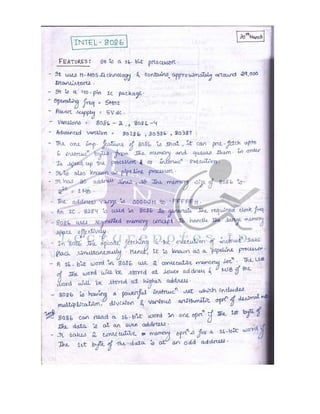 20th March
INTEL - 8086
FEATURES: It is a 16-bit processor.
- It uses H-MOS technology & contains approximately around 29,000
transistors.
- It is a 40-pin IC package.
- Operating freq = 5MHz
- Power supply = 5V dc.
- Versions = 8086-2, 8086-4
- Advanced version = 80286, 80386, 80387
- The one imp. feature of 8086 is that, it can pre-fetch upto
6 instrucn bytes from the memory and queues them in order
to speed up the processor & instrucn execution.
- It is also known as pipeline processor.
- It has 20 address lines, so the memory size of 8086 is
2^20 = 1Mb.
- The address range is 00000H to FFFFFH.
- An IC-8284 is used in 8086 to generate the required clock freq
- 8086 uses segmented memory concept to handle the large memory
space effectively.
- In 8086 the opcode fetching & the execution of instrucn takes
place simultaneously. Hence, it is known as a pipeline processor.
- A 16-bit word in 8086 use 2 consecutive memory locn. The LSB
of the word will be stored at lower address & MSB of the
word will be stored at higher address.
- 8086 is having a powerful instrucn set which includes
multiplication, division & various arithmetic oprn of decimal nos
- 8086 can read a 16-bit word in one oprn if the 1st byte of
the data is at an even address.
- It takes 2 consecutive memory oprns for a 16-bit word if
the 1st byte of the data is at an odd address.